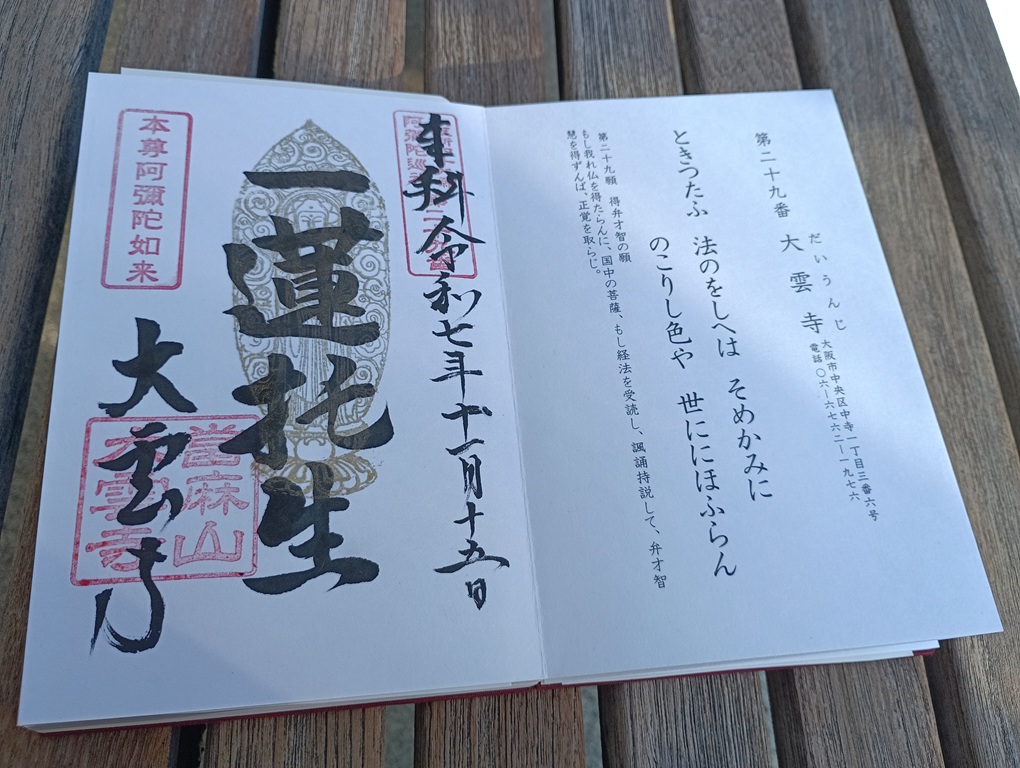 だいうんじ
第二十九番 大雲寺
大阪市中央区中寺一丁目三番六号
電話〇六-六七六二-一九七六
ときつたふ 法のをしへは そめかみに
のこりし色や 世ににほふらん
第二十九願 得弁才智の願
もし我れ仏を得たらんに、国中の菩薩、もし経法を受読し、諷誦持説して、弁才智
慧を得ずんば、正覚を取らじ。
奉拝 令和七年十一月十五日
一蓮托生
本尊阿彌陀如来
大雲寺
當麻山
大雲寺